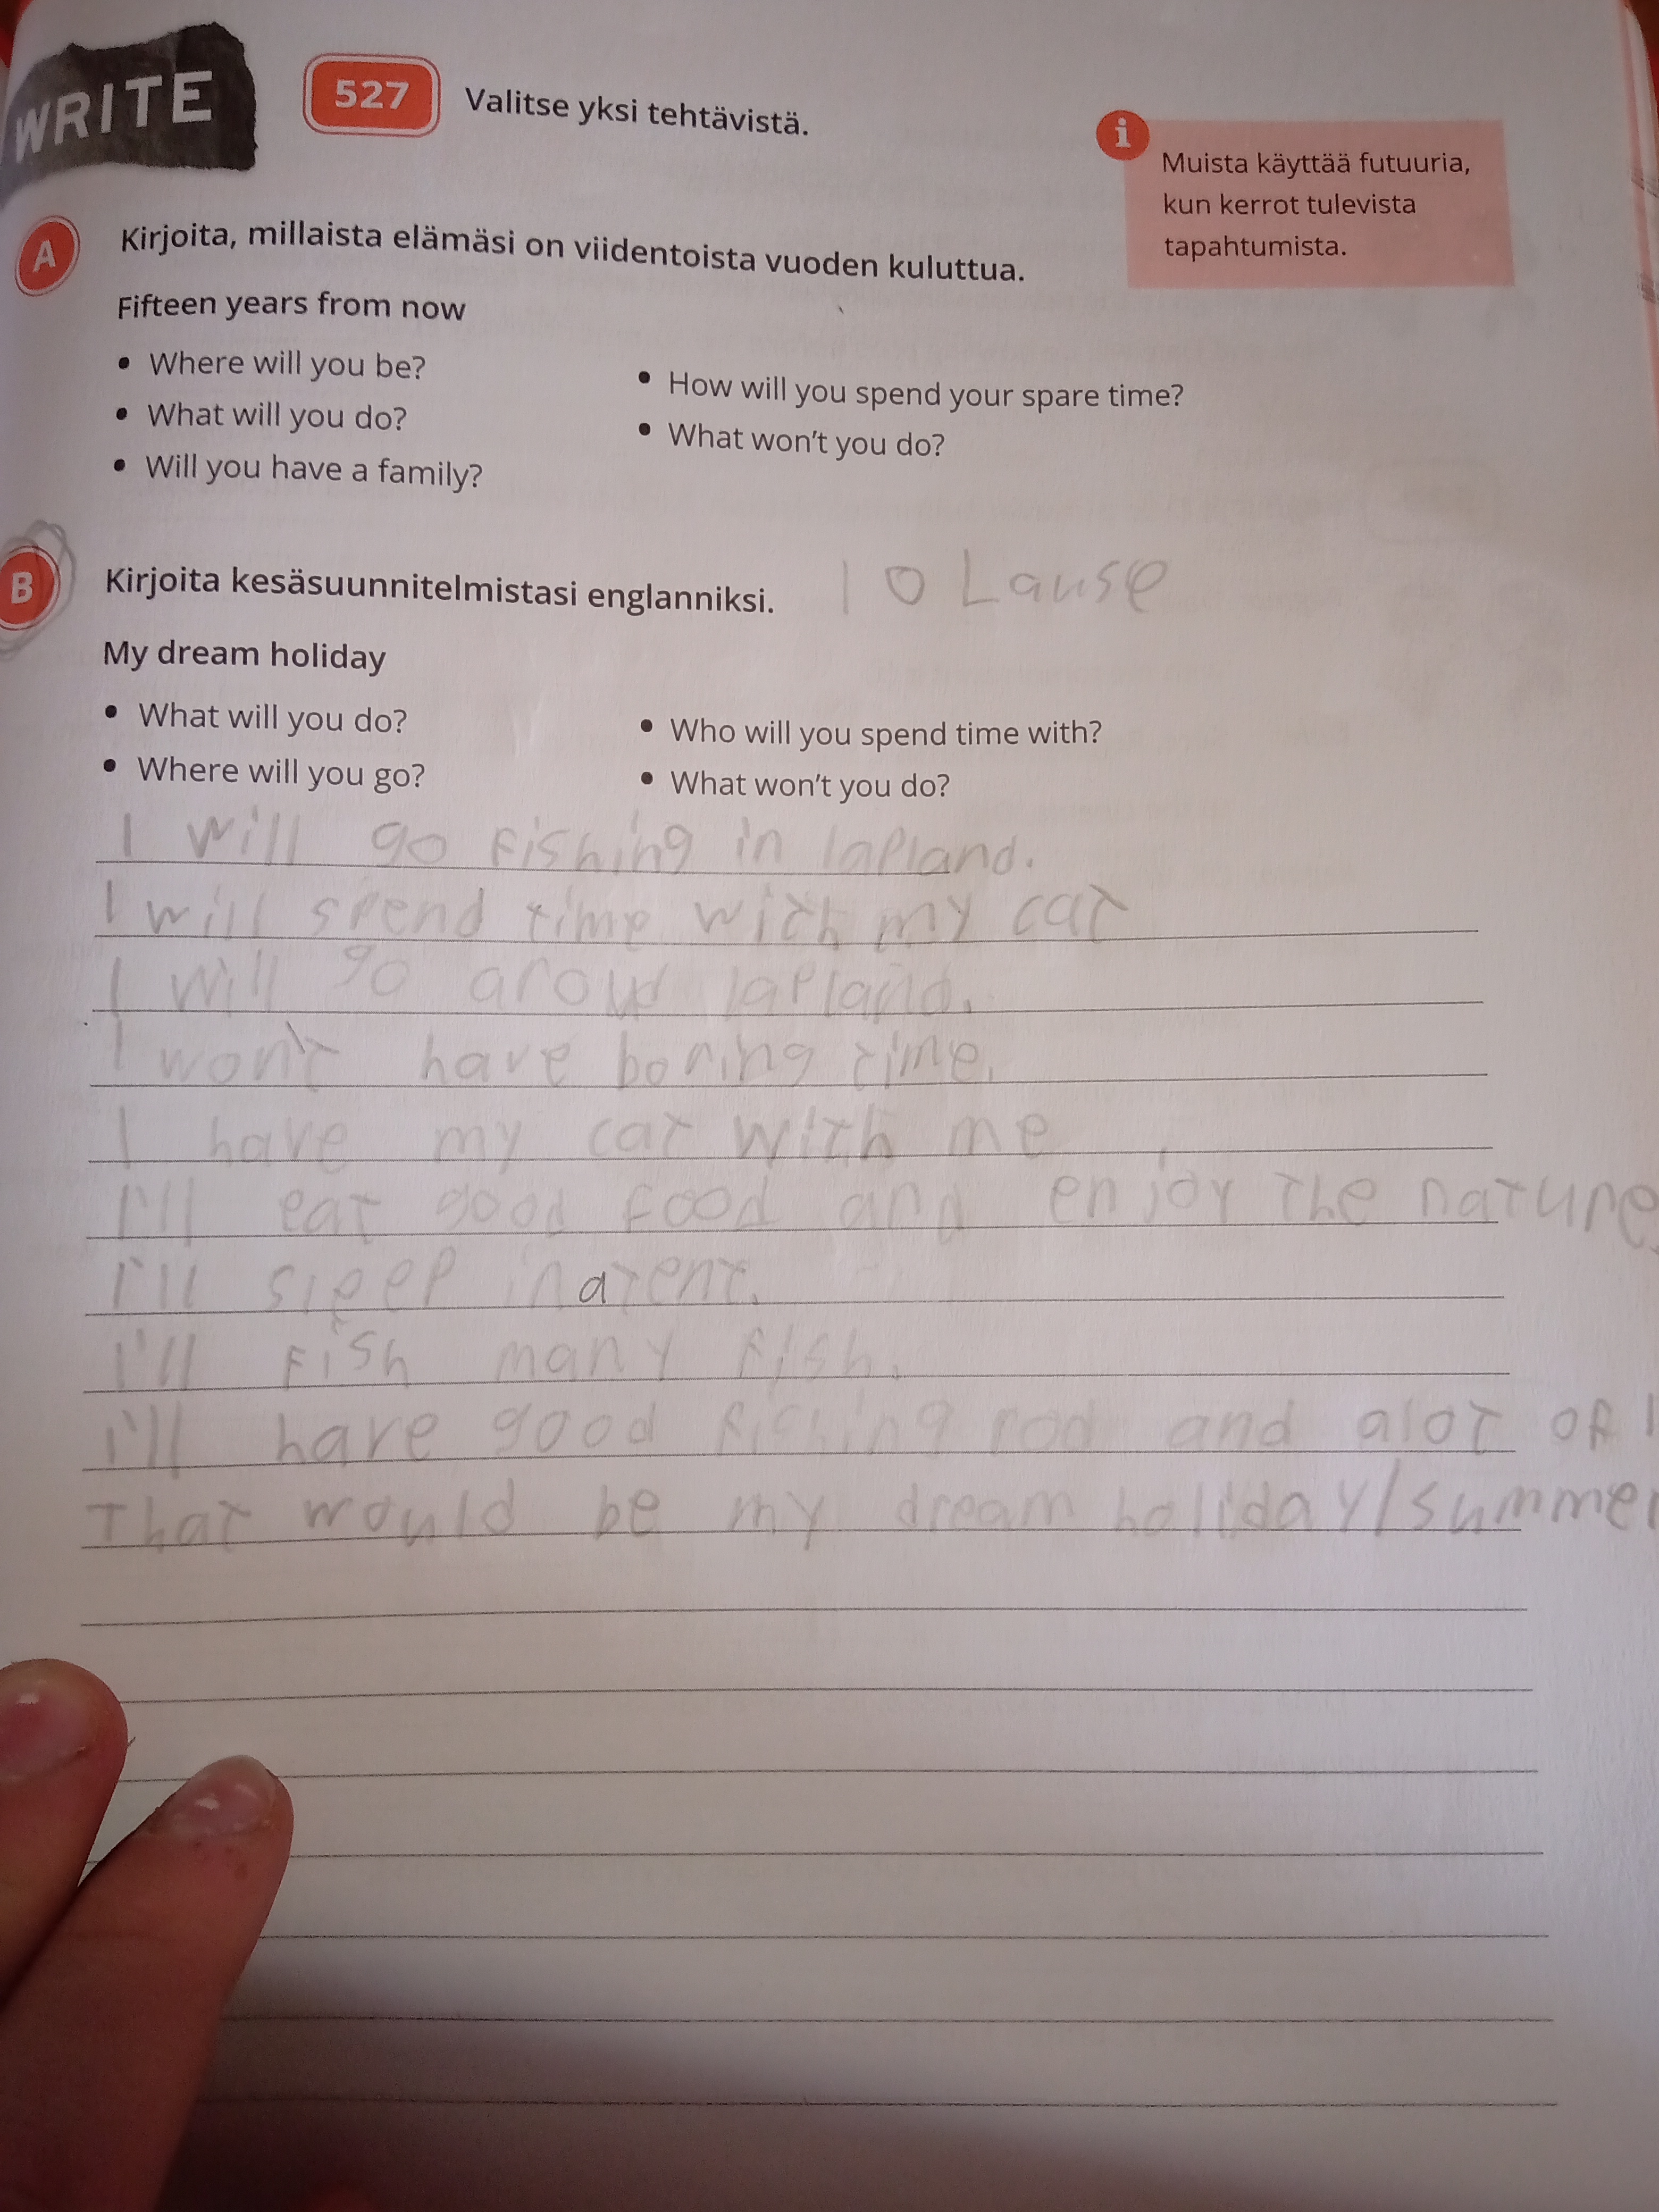 WRITE
527 Valitse yksi tehtävistä.
i
Muista käyttää futuuria,
kun kerrot tulevista
tapahtumista.
A Kirjoita, millaista elämäsi on viidentoista vuoden kuluttua.
Fifteen years from now
• Where will you be?
• What will you do?
• Will you have a family?
• How will you spend your spare time?
• What won't you do?
B Kirjoita kesäsuunnitelmistasi englanniksi. 10 Lause
My dream holiday
• What will you do?
• Where will you go?
• Who will you spend time with?
• What won't you do?
I will go fishing in lapland.
I will spend time with my cat
I will go aroud lapland.
I won't have boring time.
I have my cat with me
I'll eat good food and enjoy the nature.
I'll sleep in a tent.
I'll fish many fish.
I'll have good fishing rod and alot of
That would be my dream holiday/summer